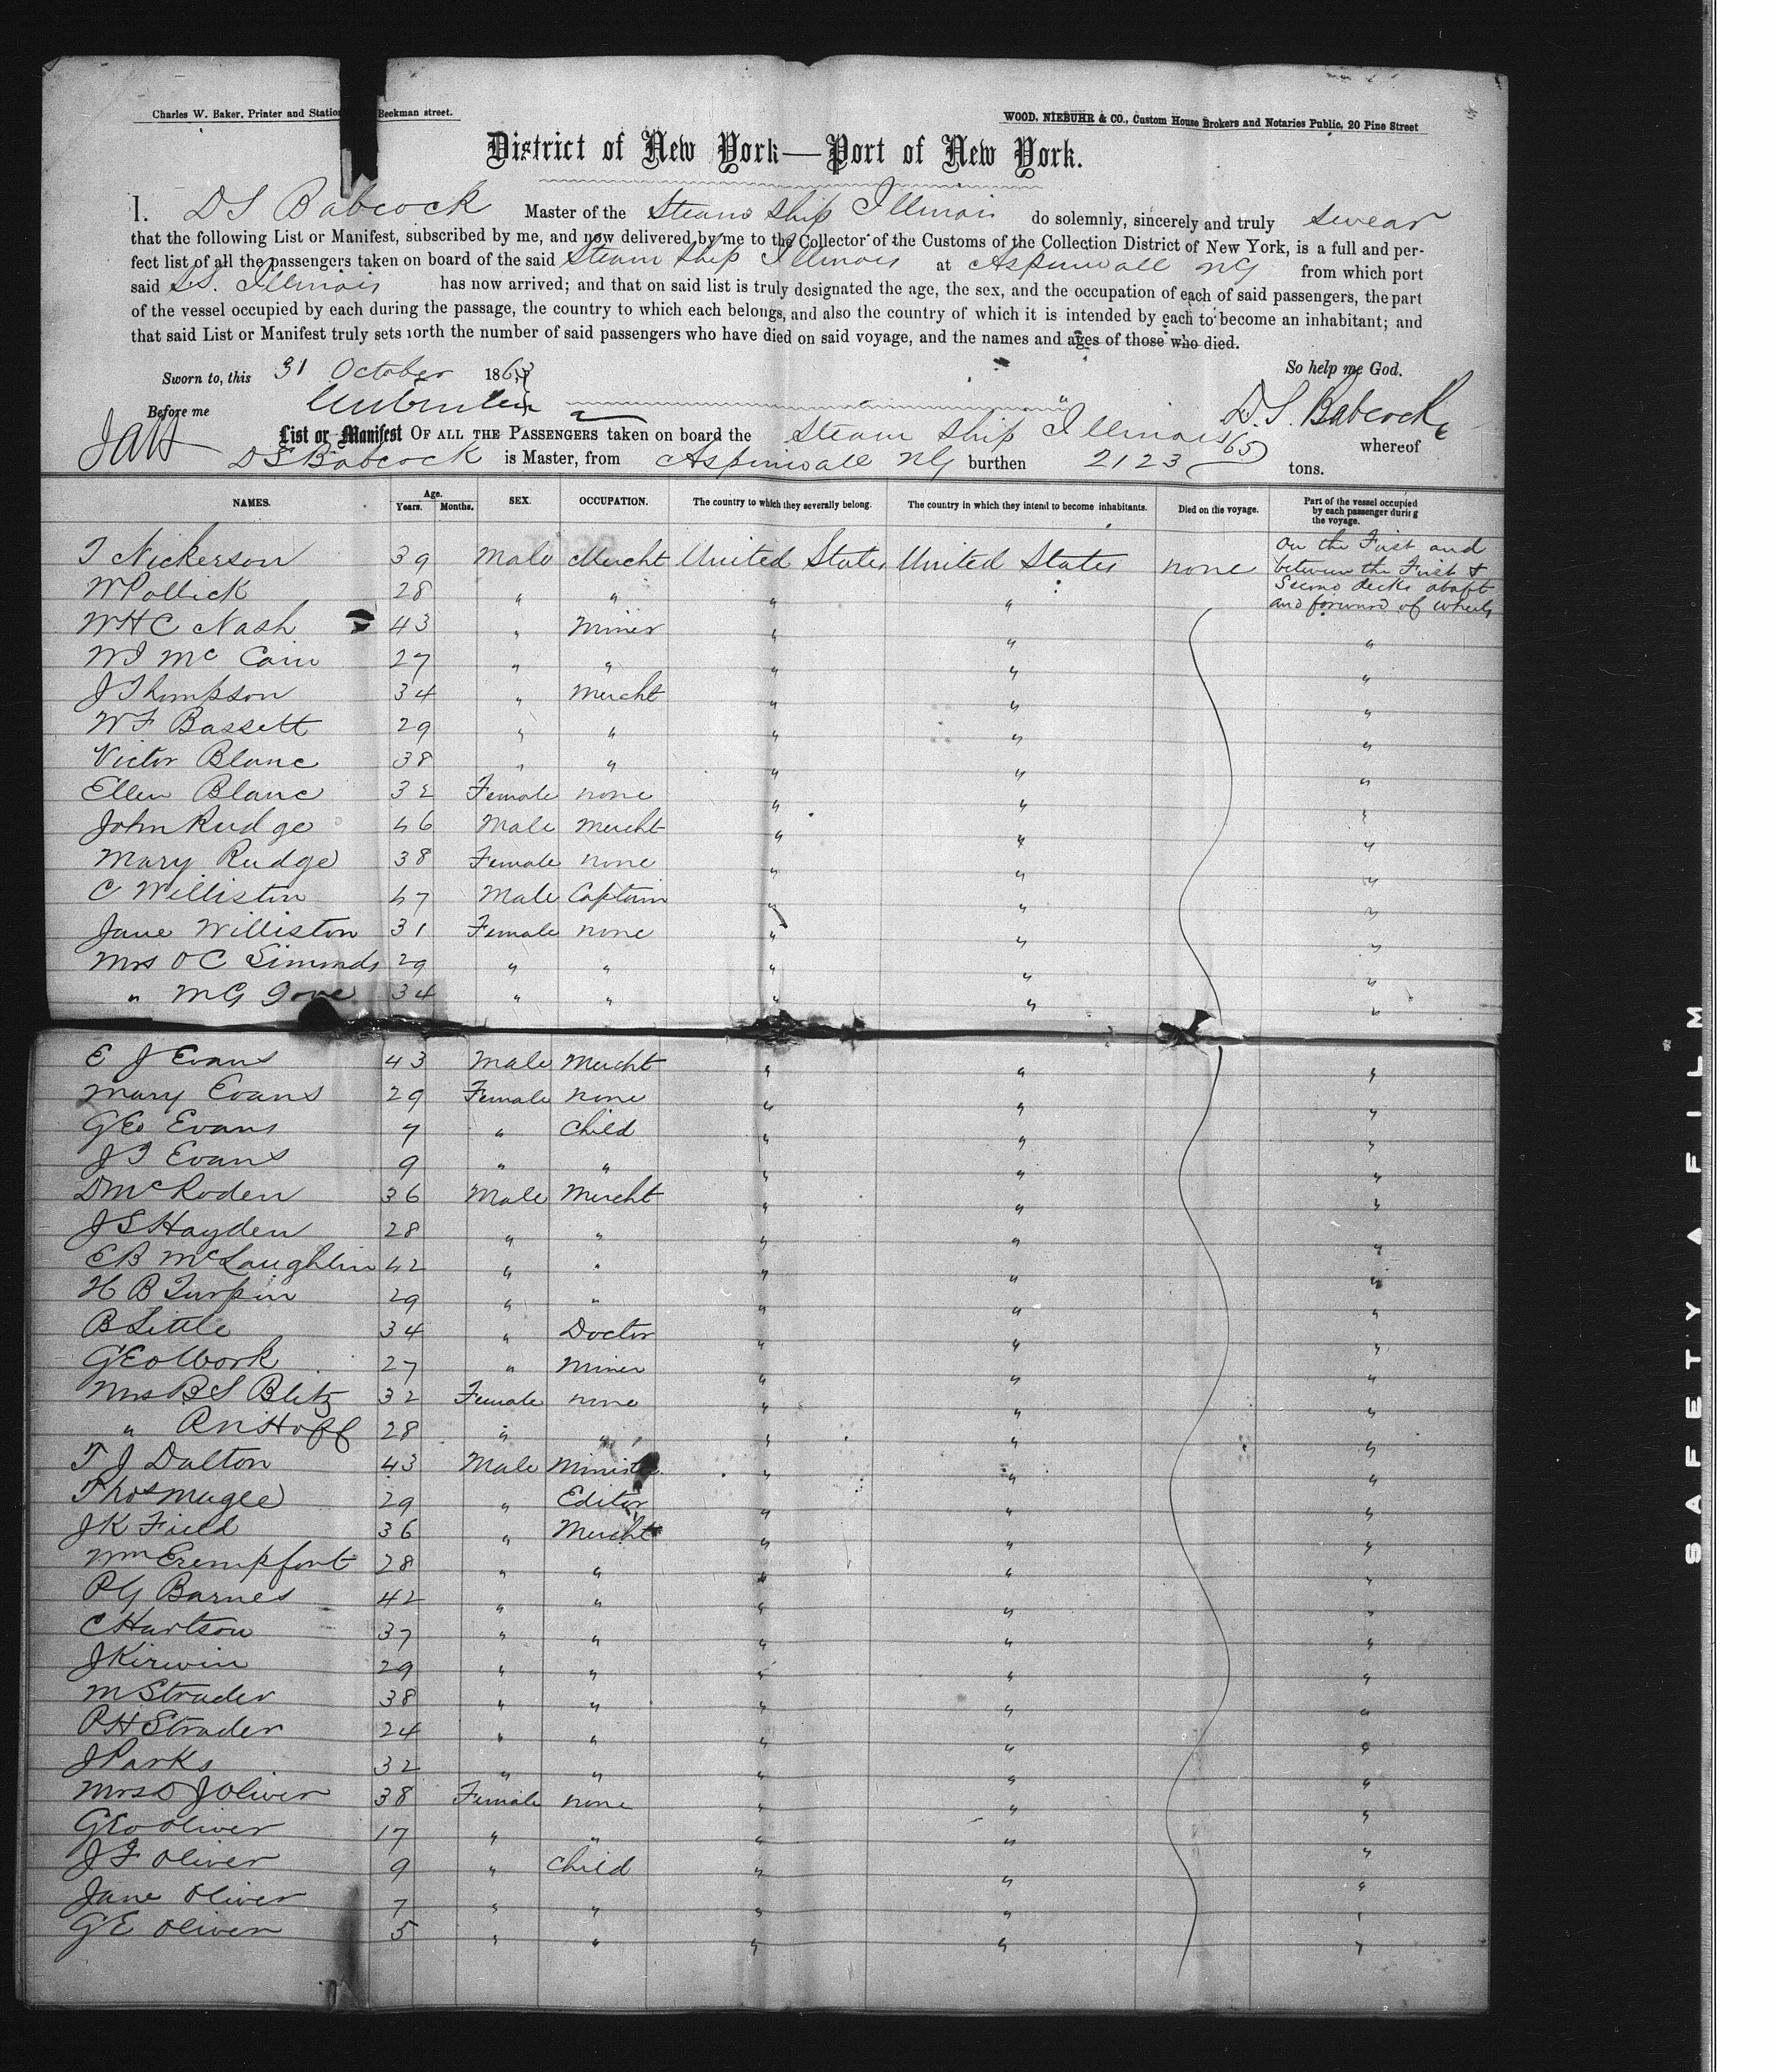 Charles W. Baker, Printer and Statio Beekman street.
WOOD, NIEBUHR & CO., Custom House Brokers and Notaries Public, 20 Pine Street
District of New York—Port of New York.
I. D S Babcock Master of the Steam Ship Illinois do solemnly, sincerely and truly swear
that the following List or Manifest, subscribed by me, and now delivered by me to the Collector of the Customs of the Collection District of New York, is a full and per-
fect list of all the passengers taken on board of the said Steam Ship Illinois at Aspinwall NG from which port
said S.S. Illinois has now arrived; and that on said list is truly designated the age, the sex, and the occupation of each of said passengers, the part
of the vessel occupied by each during the passage, the country to which each belongs, and also the country of which it is intended by each to become an inhabitant; and
that said List or Manifest truly sets forth the number of said passengers who have died on said voyage, and the names and ages of those who died.
Sworn to, this 31 October 1863 So help me God.
Before me D. S. Babcock
List or Manifest OF ALL THE PASSENGERS taken on board the Steam Ship Illinois whereof
D S Babcock is Master, from Aspinwall NG burthen 2123 65 tons.
NAMES. Age. Years. Months. SEX. OCCUPATION. The country to which they severally belong. The country in which they intend to become inhabitants. Died on the voyage. Part of the vessel occupied by each passenger during the voyage.
T Nickerson 39 Male Mercht United States United States none On the First and
between the First &
Second decks abaft
and forward of wheels
W Pollick 28 " " " "
W H C Nash 43 " Miner " " "
W J Mc Cain 27 " " " " "
J Thompson 34 " Mercht " " "
W F Bassett 29 " " " " "
Victor Blanc 38 " " " " "
Ellen Blanc 32 Female none " " "
John Rudge 46 Male Mercht " " "
Mary Rudge 38 Female none " " "
C Williston 47 Male Captain " " "
Jane Williston 31 Female none " " "
Mrs O C Simmds 29 " " " " "
" M G 34 " " " " "
E J Evans 43 Male Mercht " " "
Mary Evans 29 Female none " " "
Geo Evans 7 " Child " " "
J T Evans 9 " " " " "
D McRoden 36 Male Mercht " " "
J S Hayden 28 " " " " "
E B McLaughlin 42 " " " " "
H B Turpin 29 " " " " "
B Little 34 " Doctor " " "
Geo Work 27 " Miner " " "
Mrs B S Blitz 32 Female none " " "
" R N Hopf 28 " " " " "
T J Dalton 43 Male Minister " " "
Thos Magee 29 " Editor " " "
J K Field 36 " Mercht " " "
Wm Erempfort 28 " " " " "
P G Barnes 42 " " " " "
C Hartson 37 " " " " "
J Kirwin 29 " " " " "
M Strader 38 " " " " "
P H Strader 24 " " " " "
J Parks 32 " " " " "
Mrs D J Oliver 38 Female none " " "
Geo Oliver 17 " " " " "
J F Oliver 9 " Child " " "
Jane Oliver 7 " " " " "
G E Oliver 5 " " " " "
SAFETY A FILM